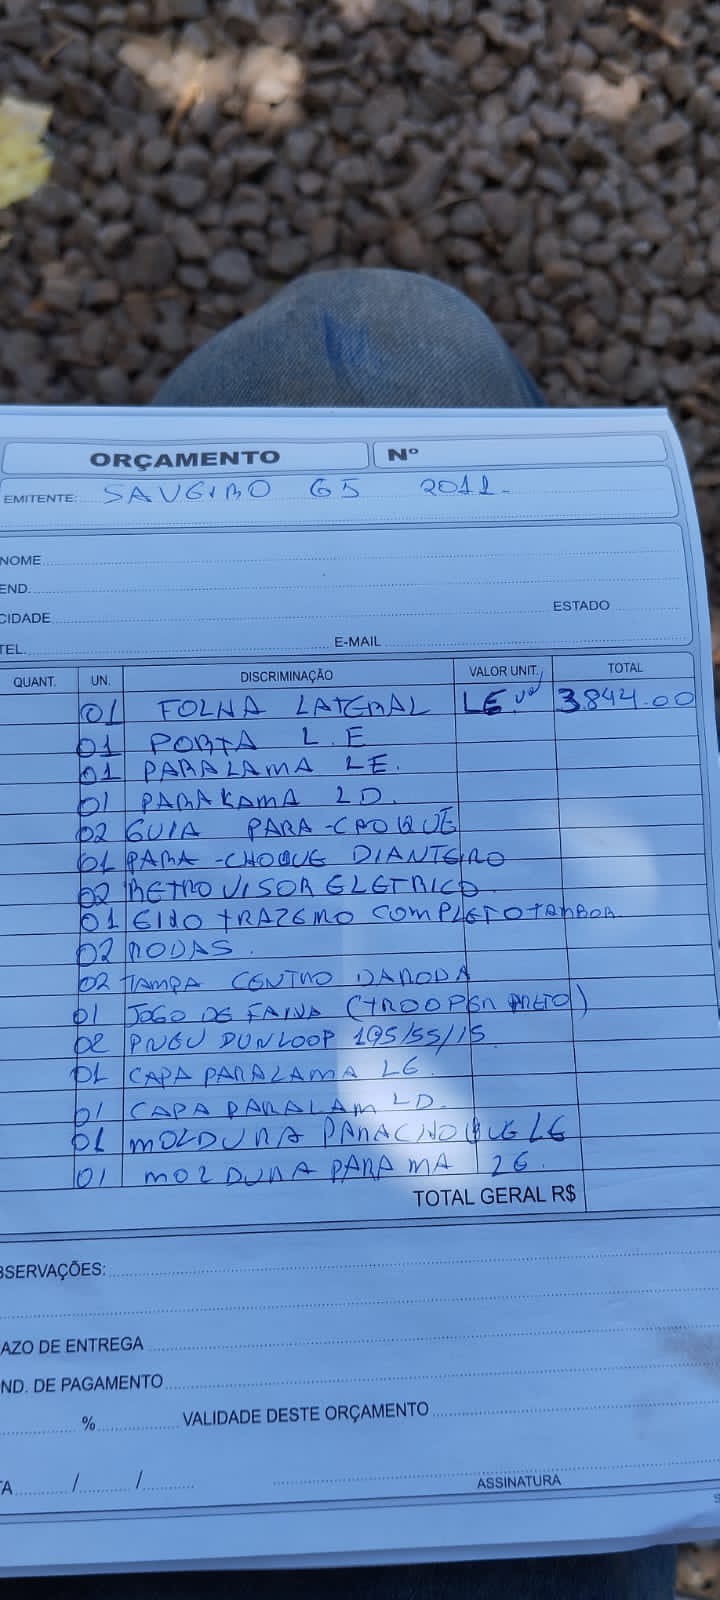 ORÇAMENTO Nº
EMITENTE: SAVEIRO G5 2011.
NOME
END.
CIDADE ESTADO
TEL. E-MAIL
QUANT. UN. DISCRIMINAÇÃO VALOR UNIT. TOTAL
01 FOLHA LATERAL LE. 3.844.00
01 PORTA L.E
01 PARALAMA LE.
01 PARAKAMA LD.
02 GUIA PARA-CHOQUE
01 PARA-CHOQUE DIANTEIRO
02 RETROVISOR ELETRICO.
01 EIXO TRAZEIRO COMPLETO TAMBOR
02 RODAS.
02 TAMPA CENTRO DA RODA
01 JOGO DE FAIXA (TROOPER PRETO)
02 PNEU DUNLOOP 195/55/15
01 CAPA PARALAMA LE.
01 CAPA PARALAM LD.
01 MOLDURA PARACHOQUE LE
01 MOLDURA PARA MA LE.
TOTAL GERAL R$
BSERVAÇÕES:
AZO DE ENTREGA
ND. DE PAGAMENTO
% VALIDADE DESTE ORÇAMENTO
TA / /
ASSINATURA